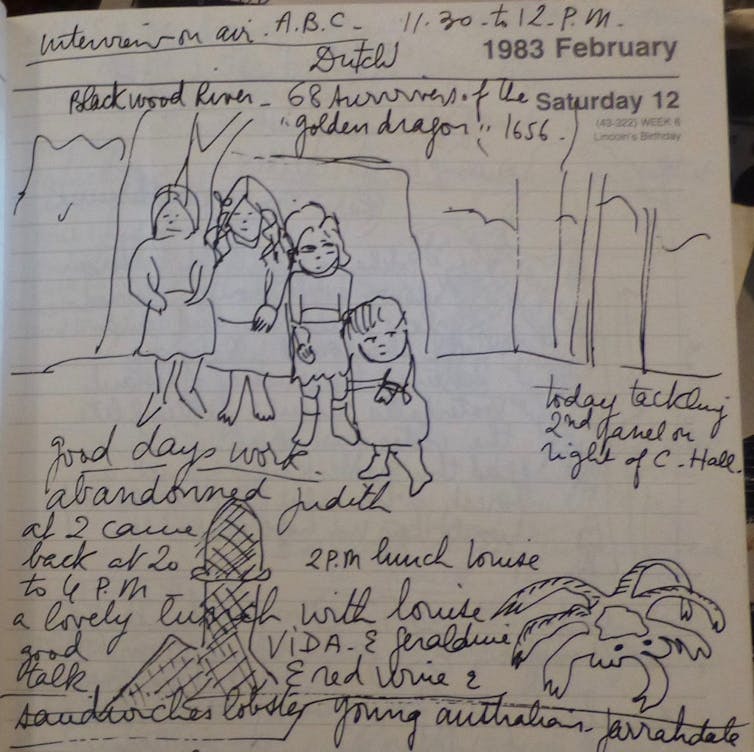 Interview on air. A.B.C. 11.30 to 12.P.M.
Dutch
1983 February
Blackwood River - 68 survivers of the
Saturday 12
"golden dragon" 1656.
(43-322) WEEK 6
Lincoln's Birthday
today tackling
2nd panel on
right of C. Hall.
good days work.
abandonned Judith
at 2 came
back at 20
to 4 P.M -
2 P.M lunch Louise
a lovely lunch with Louise
good
talk
VIDA. & Geraldine
& red wine &
sandwiches lobster young australian - Jarrahdale